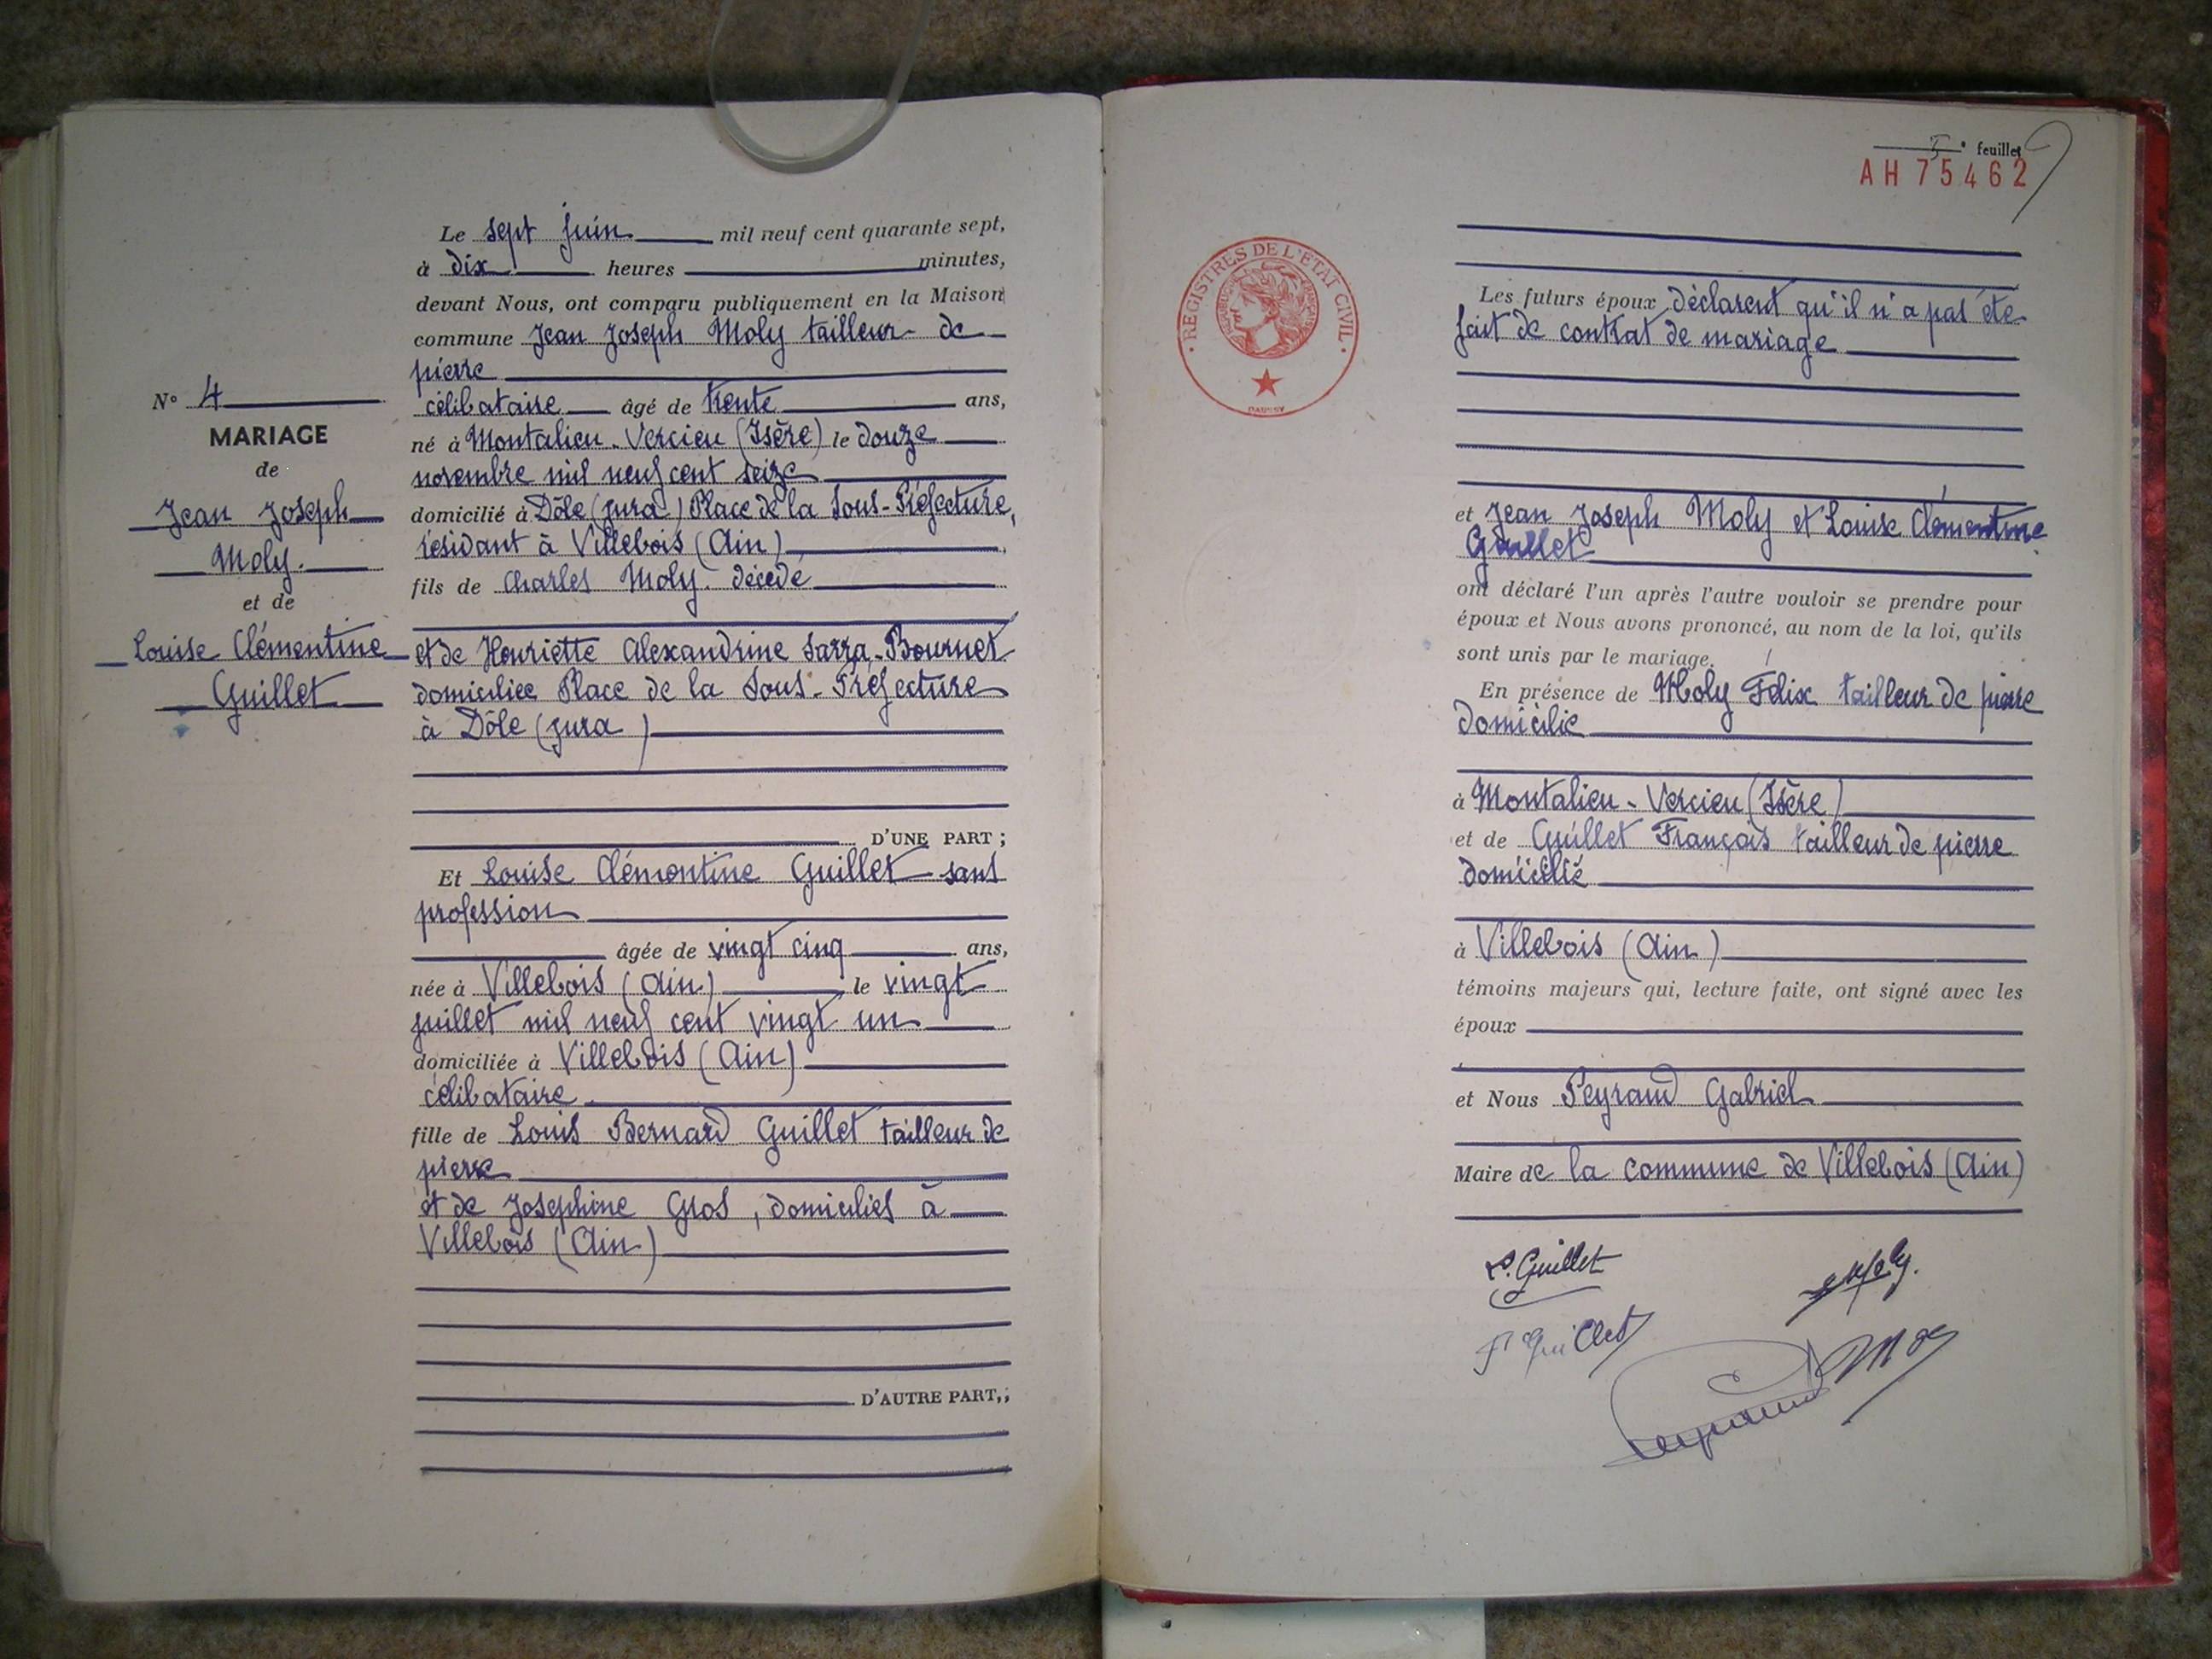 N° 4
MARIAGE
de
Jean Joseph
Moly.
et de
Louise Clémentine
Guillet
Le sept juin mil neuf cent quarante sept,
à dix heures minutes,
devant Nous, ont comparu publiquement en la Maison
commune Jean Joseph Moly tailleur de
pierre
célibataire âgé de trente ans,
né à Montalieu-Vercieu (Isère) le douze
novembre mil neuf cent seize
domicilié à Dôle (jura) Place de la Sous-Préfecture,
résidant à Villebois (Ain)
fils de Charles Moly. décédé
et de Henriette Alexandrine Sarra-Bournet
domiciliée Place de la Sous-Préfecture
à Dôle (jura)
D'UNE PART ;
Et Louise Clémentine Guillet sans
profession
âgée de vingt cinq ans,
née à Villebois (Ain) le vingt
juillet mil neuf cent vingt un
domiciliée à Villebois (Ain)
célibataire
fille de Louis Bernard Guillet tailleur de
pierre
et de Josephine Gros, domiciliés à
Villebois (Ain)
D'AUTRE PART,;
5e feuillet
AH 75462
REGISTRES DE L'ÉTAT CIVIL
Les futurs époux déclarent qu'il n'a pas été
fait de contrat de mariage
et Jean Joseph Moly et Louise Clémentine
Guillet
ont déclaré l'un après l'autre vouloir se prendre pour
époux et Nous avons prononcé, au nom de la loi, qu'ils
sont unis par le mariage.
En présence de Moly Félix tailleur de pierre
domicilié
à Montalieu-Vercieu (Isère)
et de Guillet François tailleur de pierre
domicilié
à Villebois (Ain)
témoins majeurs qui, lecture faite, ont signé avec les
époux
et Nous Peyraud Gabriel
Maire de la commune de Villebois (Ain)
L. Guillet
Moly.
F Guillet
Moly
Peyraud